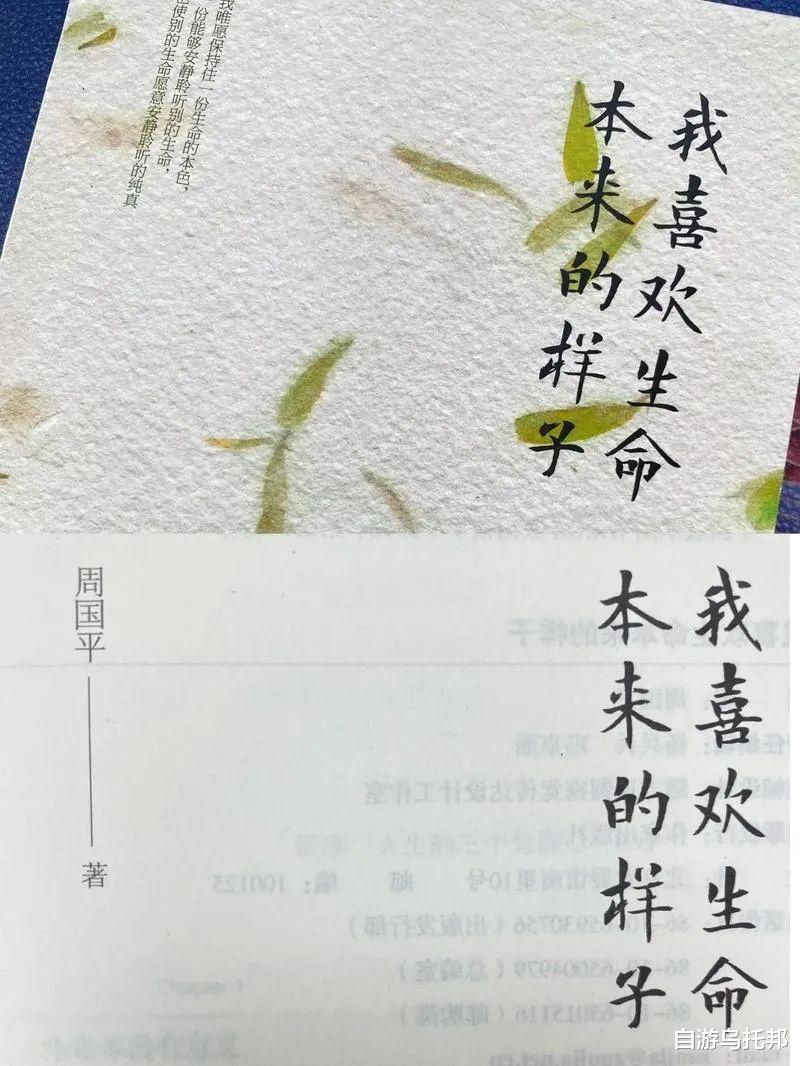 我喜欢生命
本来的样子
我唯愿保持住一份生命的本色，
份能够安静聆听别的生命，
使别的生命愿意安静聆听的纯真
我喜欢生命
本来的样子
周国平——著
自游乌托邦